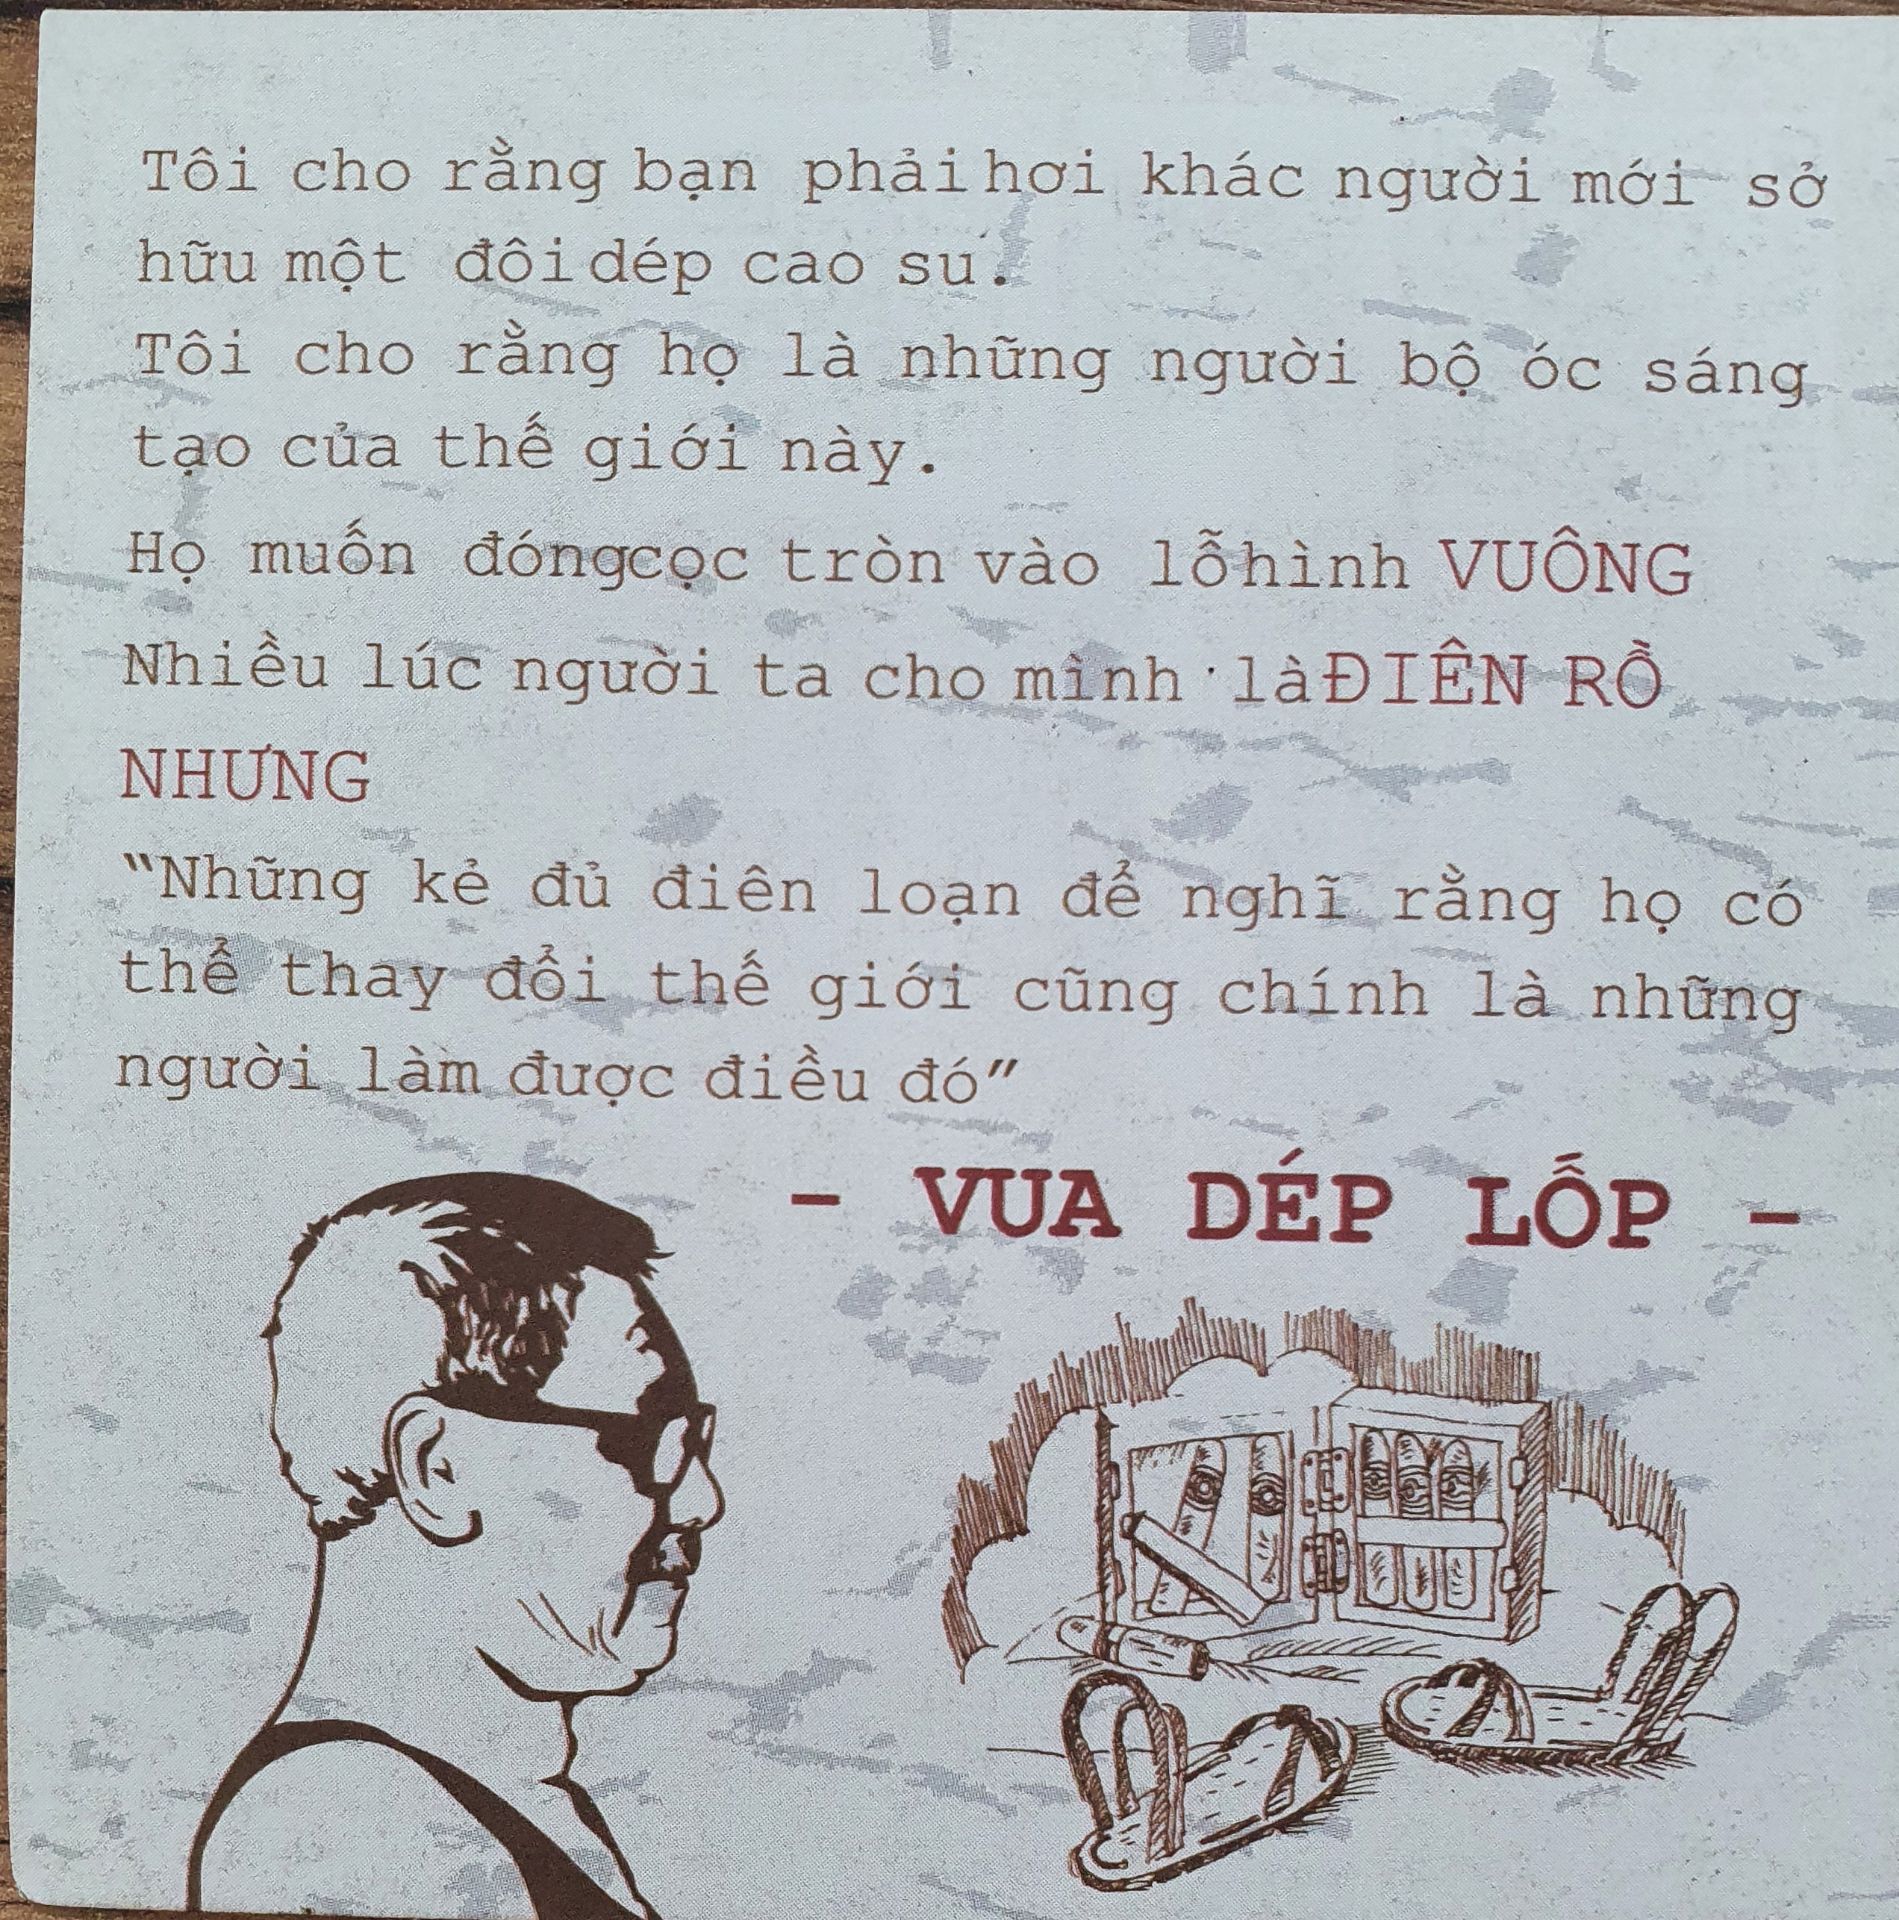 Tôi cho rằng bạn phải hơi khác người mới sở
hữu một đôi dép cao su.
Tôi cho rằng họ là những người bộ óc sáng
tạo của thế giới này.
Họ muốn đóngcọc tròn vào lỗ hình VUÔNG
Nhiều lúc người ta cho mình là ĐIÊN RỒ
NHƯNG
“Những kẻ đủ điên loạn để nghĩ rằng họ có
thể thay đổi thế giới cũng chính là những
người làm được điều đó”
- VUA DÉP LỐP -